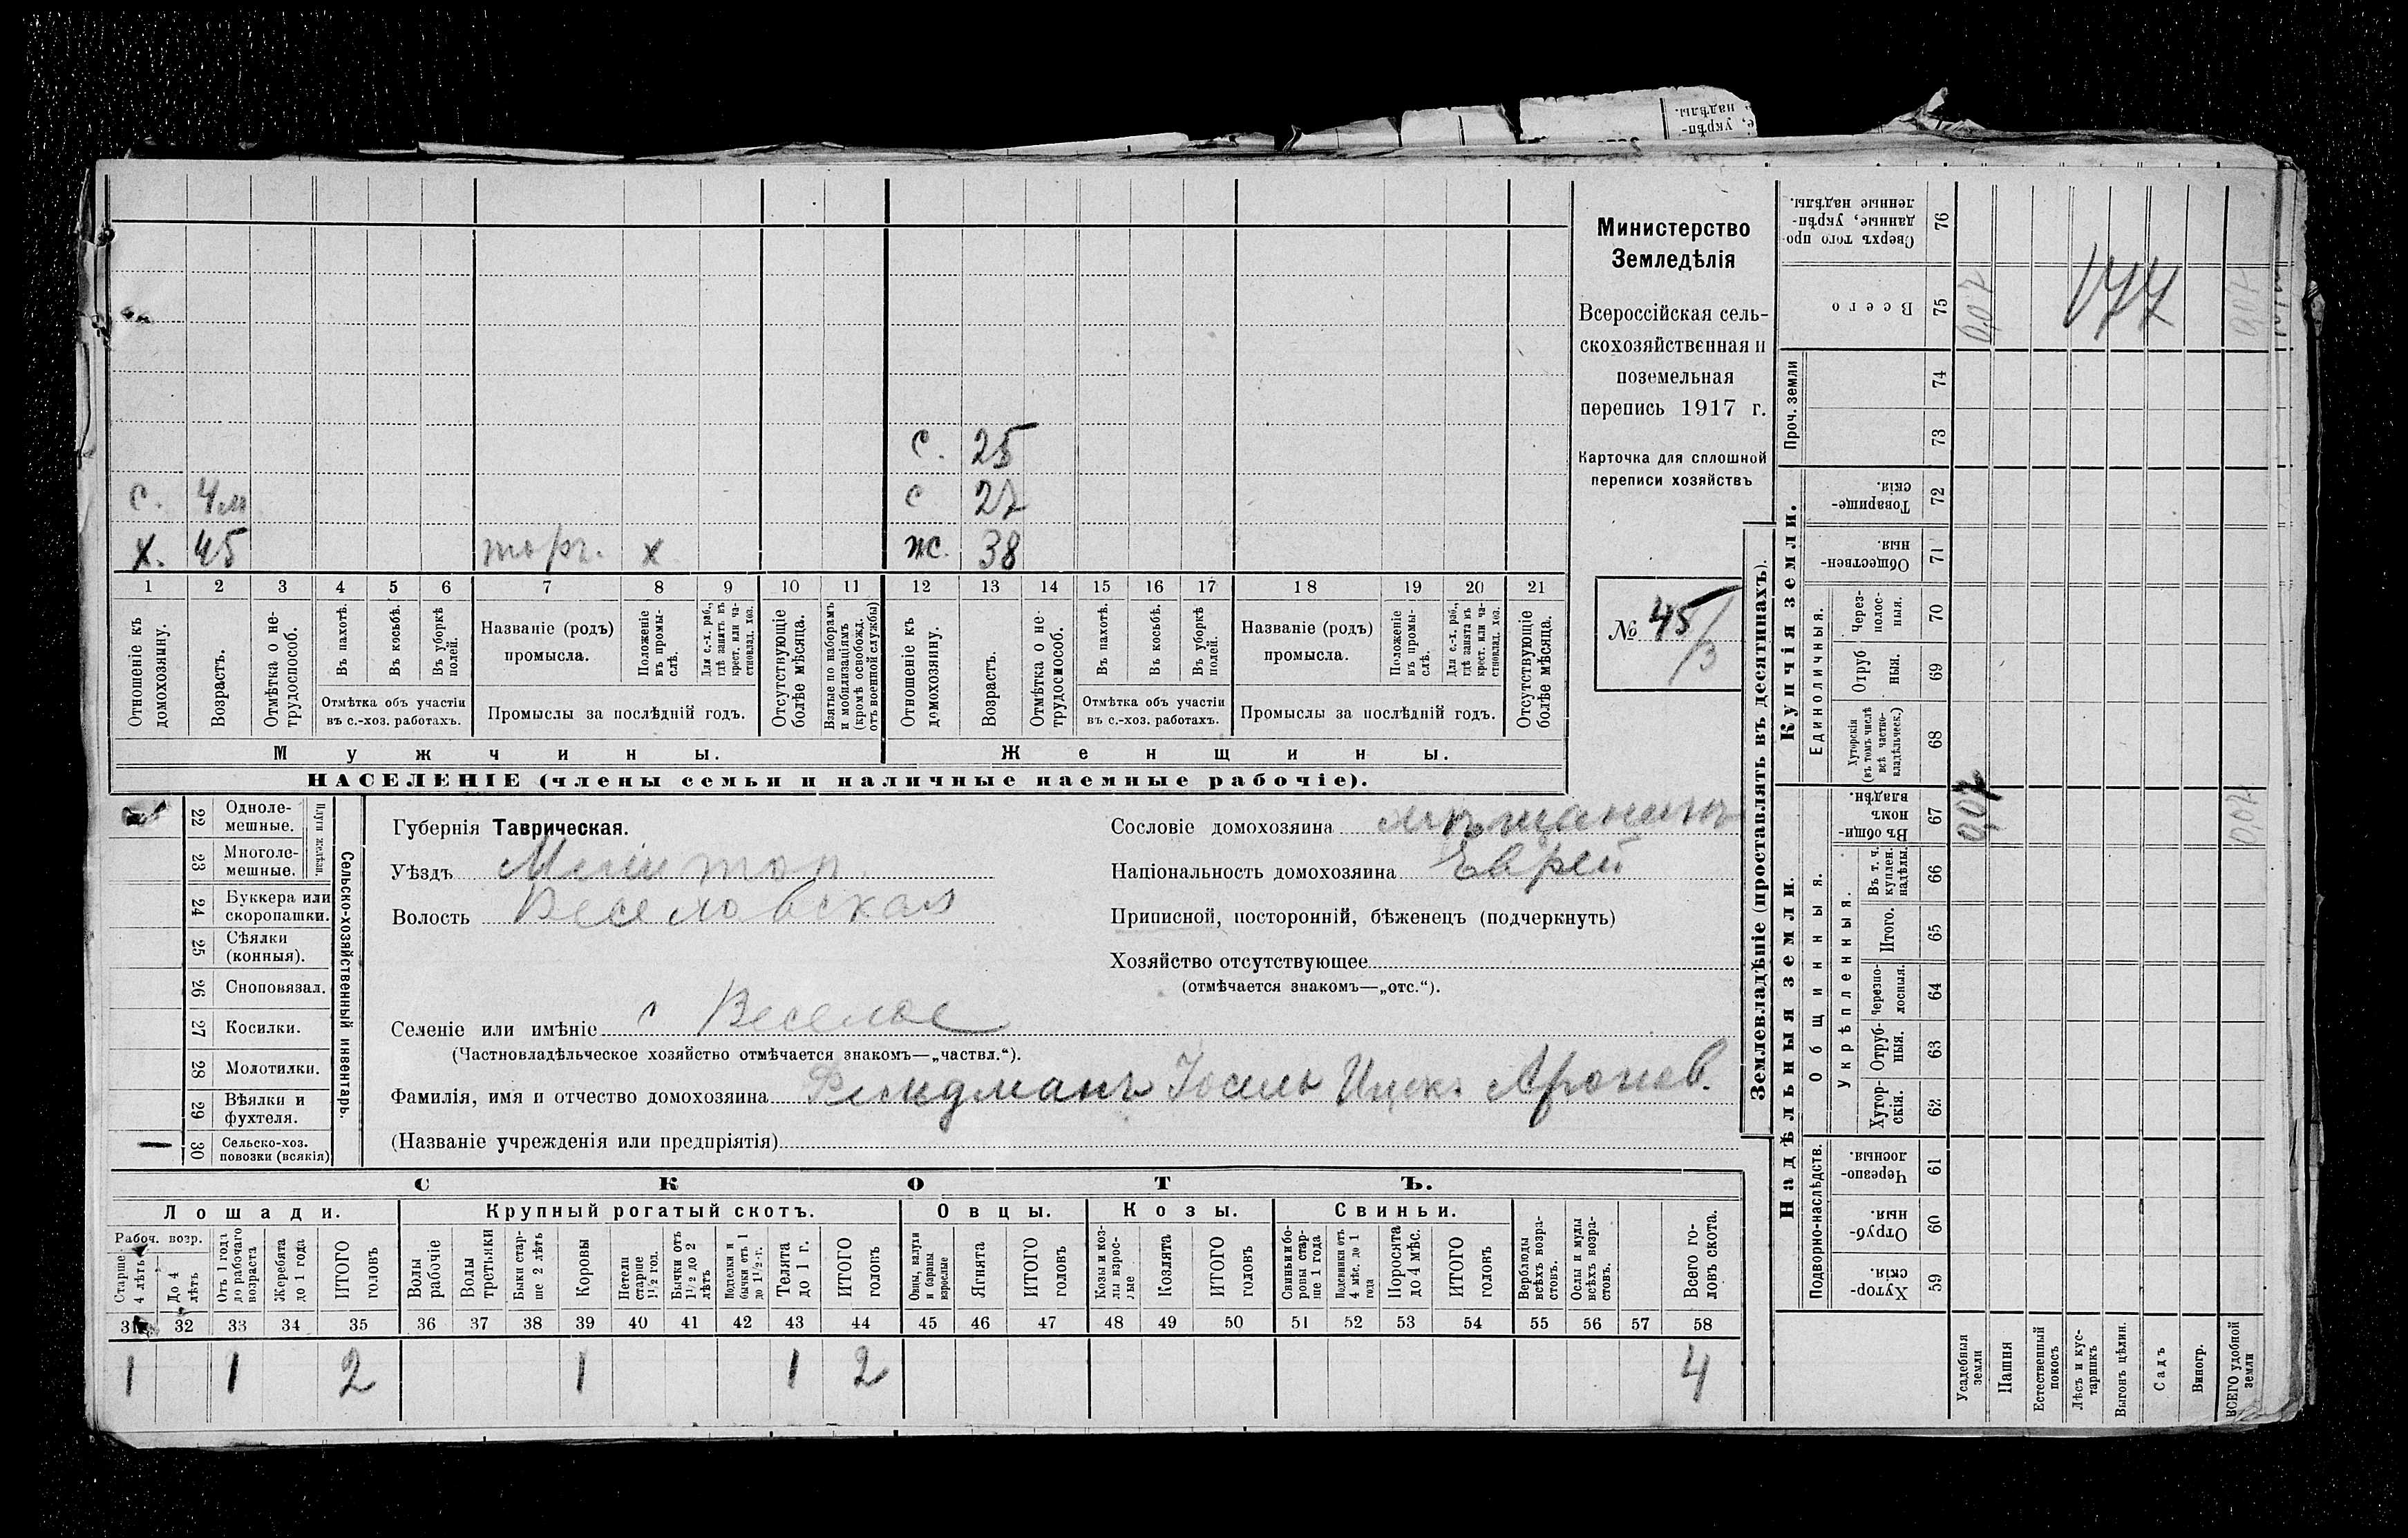 надѣлы.
укрѣп-
Министерство
Земледѣлія
Всероссійская сель-
скохозяйственная и
поземельная
перепись 1917 г.
Карточка для сплошной
переписи хозяйствъ
№ 45/3
с. 25
с. 4 м с 27
х. 45 торг. х ж. 38
1 2 3 4 5 6 7 8 9 10 11 12 13 14 15 16 17 18 19 20 21
Отношеніе къ домохозяину.
Возрастъ.
Отмѣтка о не-трудоспособ.
Въ пахотѣ.
Въ косьбѣ.
Въ уборкѣ полей.
Отмѣтка объ участіи
въ с.-хоз. работахъ.
Названіе (родъ)
промысла.
Положеніе въ промы-слѣ.
Для с.-х. раб., гдѣ занятъ въ крест. или ча-стновлад. хоз.
Промыслы за послѣдній годъ.
Отсутствующіе болѣе мѣсяца.
Взятые по наборамъ и мобилизаціямъ (кромѣ освобожд. отъ военной службы)
Отношеніе къ домохозяину.
Возрастъ.
Отмѣтка о не-трудоспособ.
Въ пахотѣ.
Въ косьбѣ.
Въ уборкѣ полей.
Отмѣтка объ участіи
въ с.-хоз. работахъ.
Названіе (родъ)
промысла.
Положеніе въ промы-слѣ.
Для с.-х. раб., гдѣ занята въ крест. или ча-стновлад. хоз.
Промыслы за послѣдній годъ.
Отсутствующіе болѣе мѣсяца.
Мужчины. Женщины.
НАСЕЛЕНІЕ (члены семьи и наличные наемные рабочіе).
22 Одноле-мешные.
23 Многоле-мешные.
Плуги желѣзн.
24 Буккера или скоропашки.
25 Сѣялки (конныя).
26 Сноповязал.
27 Косилки.
28 Молотилки.
29 Вѣялки и фухтеля.
1 30 Сельско-хоз. повозки (всякія)
Сельско-хозяйственный инвентарь.
Губернія Таврическая.
Уѣздъ Мелитоп
Волость Веселовская
Сословіе домохозяина мѣщанинъ
Національность домохозяина Еврей
Приписной, посторонній, бѣженецъ (подчеркнуть)
Хозяйство отсутствующее
(отмѣчается знакомъ—„отс.“).
Селеніе или имѣніе с Веселое
(Частновладѣльческое хозяйство отмѣчается знакомъ—„частвл.“).
Фамилія, имя и отчество домохозяина Фельдманъ Іосель Ицек. Аронов.
(Названіе учрежденія или предпріятія)
СКОТЪ.
Лошади. Крупный рогатый скотъ. Овцы. Козы. Свиньи.
Рабоч. возр.
Старше 4 лѣтъ
До 4 лѣтъ
Отъ 1 года до рабочаго возраста
Жеребята до 1 года
ИТОГО головъ
Волы рабочіе
Волы третьяки
Быки стар-ше 2 лѣтъ
Коровы
Нетели старше 1½ год.
Бычки отъ 1½ до 2 лѣтъ
Подтелки и бычки отъ 1 до 1½ г.
Телята до 1 г.
ИТОГО головъ
Овцы, валухи и бараны взрослые
Ягнята
ИТОГО головъ
Козы и коз-лы взрос-лые
Козлята
ИТОГО головъ
Свиньи и бо-ровы стар-ше 1 года
Подсвинки отъ 4 мѣс. до 1 года
Поросята до 4 мѣс.
ИТОГО головъ
Верблюды всѣхъ возра-стовъ.
Ослы и мулы всѣхъ возра-стовъ.
Всего го-ловъ скота.
31 32 33 34 35 36 37 38 39 40 41 42 43 44 45 46 47 48 49 50 51 52 53 54 55 56 57 58
1 1 2 1 1 2 4
Землевладѣніе (проставлять въ десятинахъ).
Надѣльныя земли. Купчія земли. Проч. земли
Подворно-наслѣдств.
Общинныя.
Укрѣпленныя.
Единоличныя.
Сверхъ того про-данные, укрѣп-ленные надѣлы. 76
Всего 75 0,07 0,07
177
74
73
Товарище-скія. 72
Обществен-ныя. 71
Через-полос-ныя. 70
Отруб ныя. 69
Хуторскія (въ томъ числѣ всѣ частно-владѣльческ.) 68
Въ общи-номъ владѣн. 67 0,07 0,07
Въ т. ч. куплен. надѣлы. 66
Итого. 65
Черезпо-лосныя. 64
Отруб-ныя. 63
Хутор-скія. 62
Черезпо-лосныя. 61
Отруб-ныя. 60
Хутор-скія. 59
Усадебныя земли
Пашня
Естественный покосъ
Лѣсъ и кус-тарникъ
Выгонъ цѣлин.
Садъ
Виногр.
ВСЕГО удобной земли